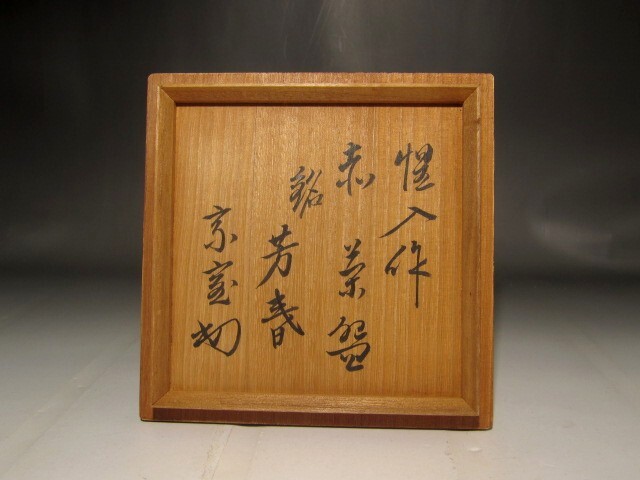 惺入作
赤 茶盌
銘 芳春
宗室